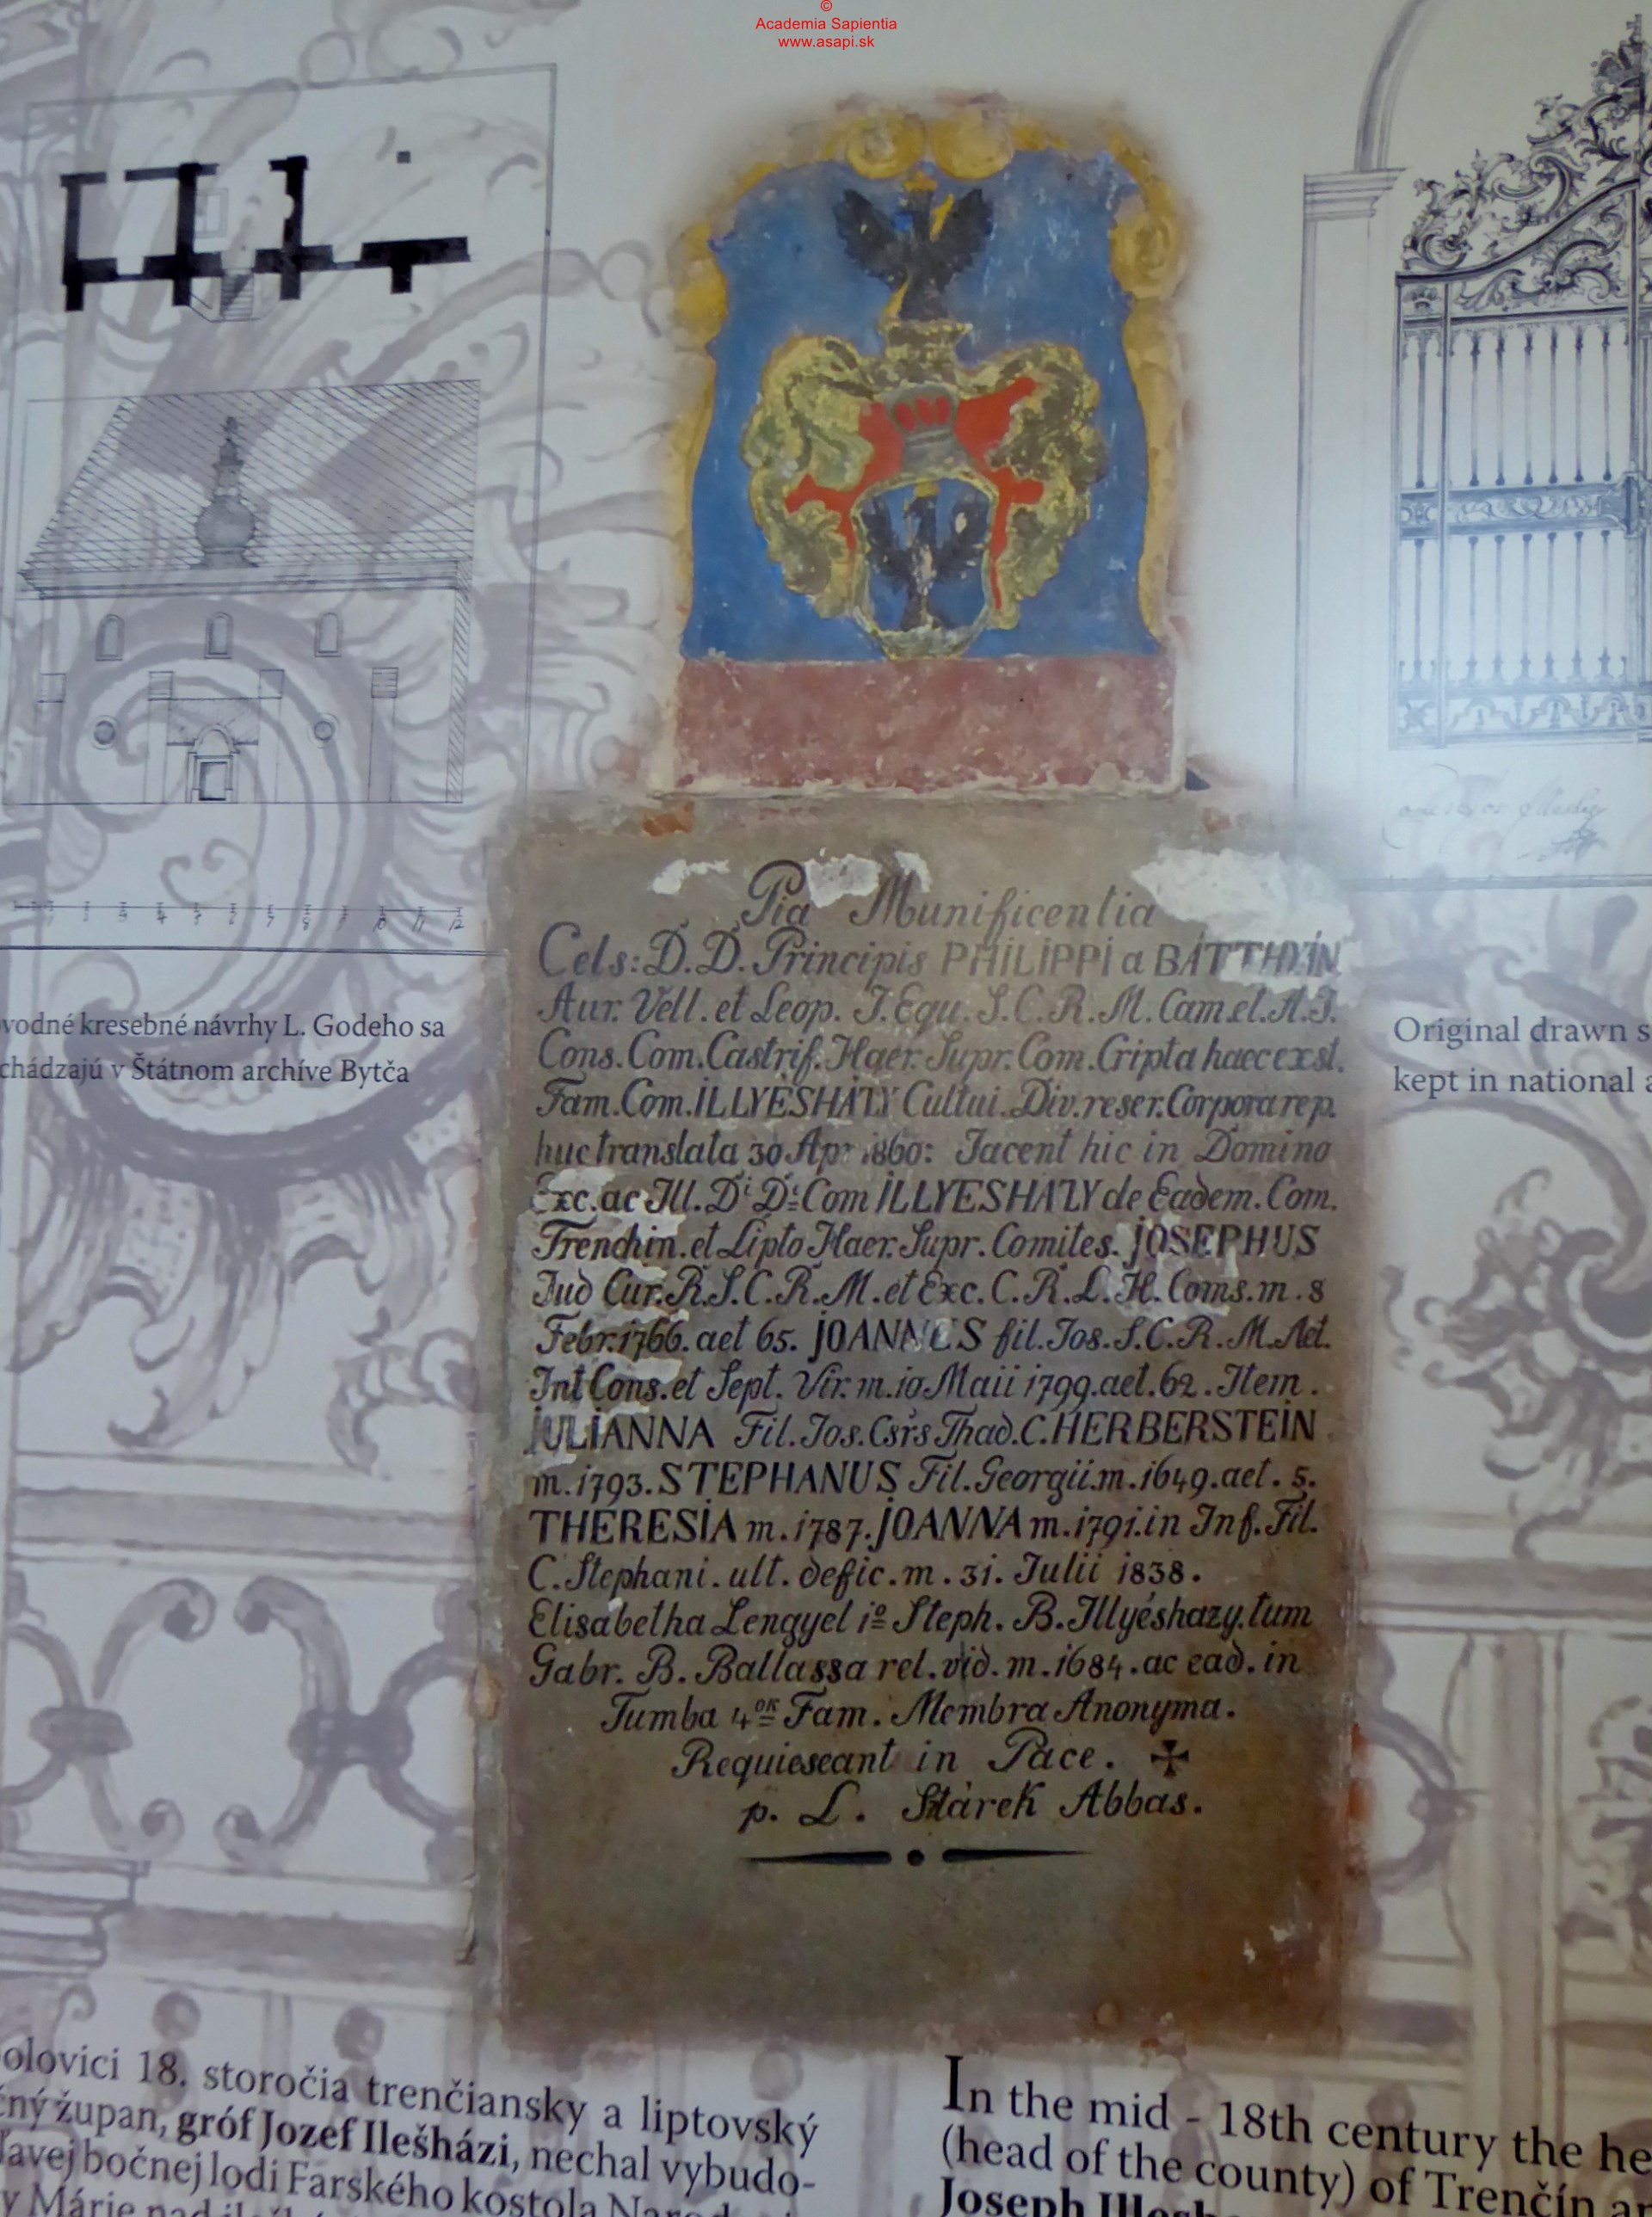 ©
Academia Sapientia
www.asapi.sk
Pia Munificentia
Cels: D. D. Principis PHILIPPI a BATTHYÁN
Aur. Vell. et Leop. I. Equ. S. C. R. M. Cam. et. A. I.
Cons. Com. Castrif. Haer. Supr. Com. Cripta haec exst.
Fam. Com. ILLYESHÁZY Cultui. Div. reser. Corpora rep.
huc translata 30 Apr 1860: Jacent hic in Domino
Exc. ac Ill. D: D: Com ILLYESHAZY de Eadem. Com.
Trenchin. et Lipto Haer. Supr. Comites. JOSEPHUS
Jud Cur. R. S. C. R. M. et Exc. C. R. L. H. Coms. m. 8
Febr. 1766. aet 65. JOANNES fil. Jos. S. C. R. M. Act.
Int Cons. et Sept. Vir. m. 10 Maii 1799. aet. 62. Item.
JULIANNA Fil. Jos. Csrs Thad. C. HERBERSTEIN
m. 1793. STEPHANUS Fil. Georgii. m. 1649. aet. 5.
THERESIA m. 1787. JOANNA m. 1791. in Inf. Fil.
C. Stephani. ult. defic. m. 31. Julii 1838.
Elisabetha Lengyel 1º Steph. B. Illyéshazy. tum
Gabr. B. Ballassa rel. vid. m. 1684. ac ead. in
Tumba 4or Fam. Membra Anonyma.
Requiescant in Pace. ✠
p. L. Stárek Abbas.
vodné kresebné návrhy L. Godeho sa
chádzajú v Štátnom archíve Bytča
Original drawn s
kept in national a
olovici 18. storočia trenčiansky a liptovský
čný župan, gróf Jozef Ilešházi, nechal vybudo-
ľavej bočnej lodi Farského kostola Narod
v Márie nad
In the mid - 18th century the he
(head of the county) of Trenčín an
Joseph Illesh